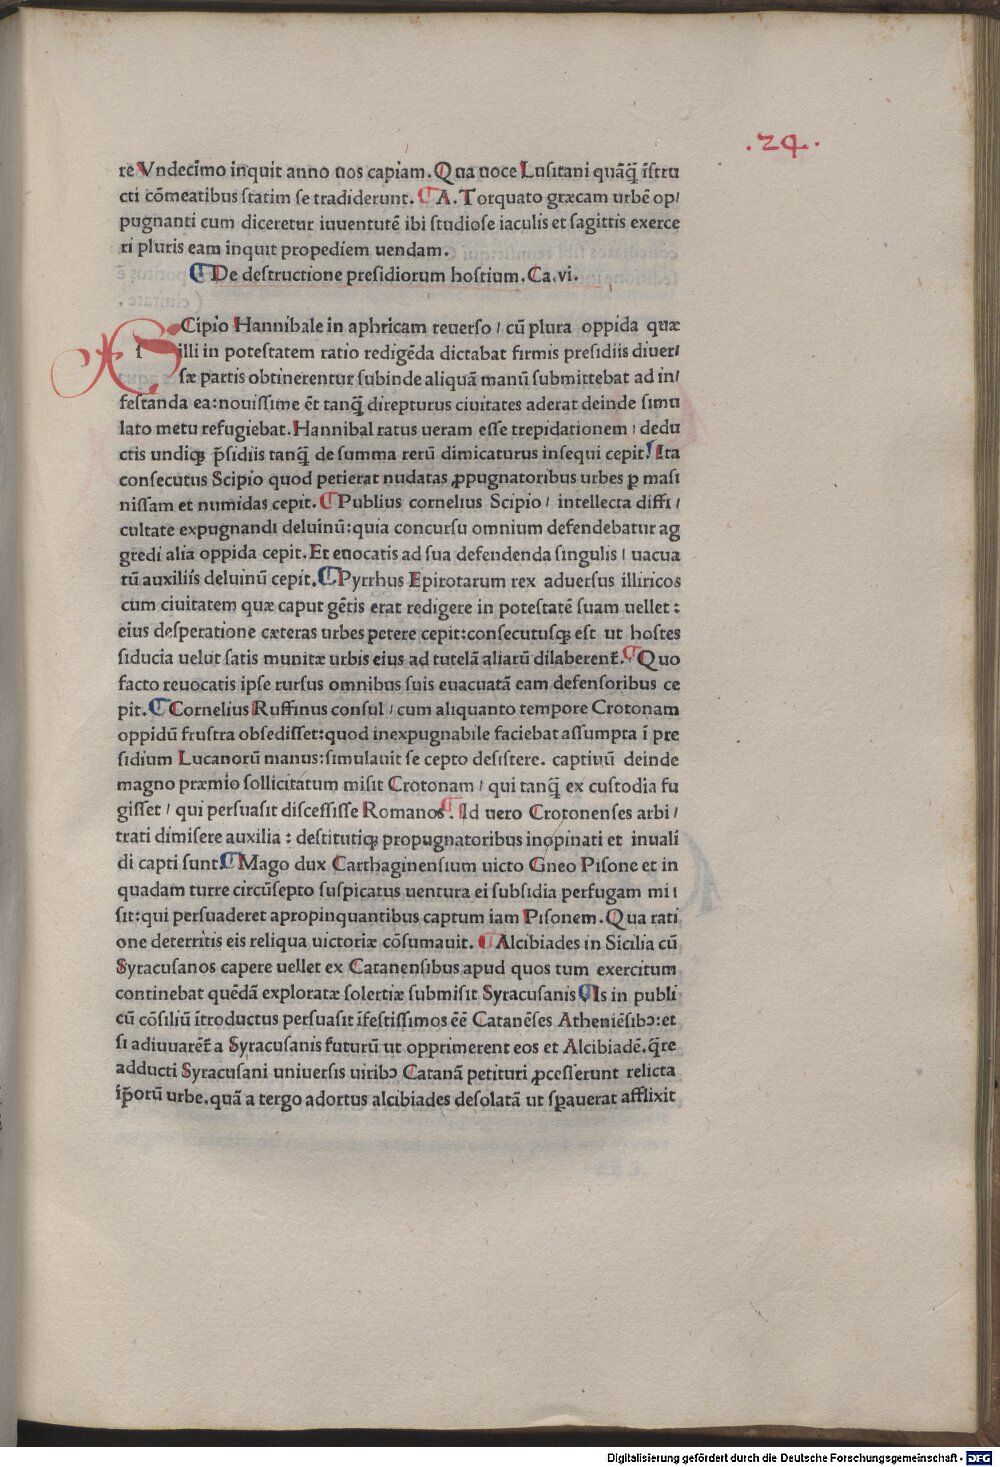 .24.
re Vndecimo inquit anno uos capiam. Qua uoce Lusitani quāq̄ īstru
cti cōmeatibus statim se tradiderunt. ¶ A. Torquato græcam urbē op/
pugnanti cum diceretur iuuentutē ibi studiose iaculis et sagittis exerce
ri pluris eam inquit propediem uendam.
¶ De destructione presidiorum hostium. Ca. vi.
SCipio Hannibale in aphricam reuerso / cū plura oppida quæ
illi in potestatem ratio redigēda dictabat firmis presidiis diuer/
sæ partis obtinerentur subinde aliquā manū submittebat ad in/
festanda ea: nouissime ēt tanq̄ direpturus ciuitates aderat deinde simu
lato metu refugiebat. Hannibal ratus ueram esse trepidationem / dedu
ctis undiqꝫ p̄sidiis tanq̄ de summa rerū dimicaturus insequi cepit. Ita
consecutus Scipio quod petierat nudatas ꝓpugnatoribus urbes ꝑ masi
nissam et numidas cepit. ¶ Publius cornelius Scipio / intellecta diffi /
cultate expugnandi deluinū: quia concursu omnium defendebatur ag
gredi alia oppida cepit. Et euocatis ad sua defendenda singulis / uacua
tū auxiliis deluinū cepit. ¶ Pyrrhus Epirotarum rex aduersus illiricos
cum ciuitatem quæ caput gētis erat redigere in potestatē suam uellet :
eius desperatione cæteras urbes petere cepit: consecutusqꝫ est ut hostes
fiducia uelut satis munitæ urbis eius ad tutelā aliarū dilaberent̄. ¶ Quo
facto reuocatis ipse rursus omnibus suis euacuatā eam defensoribus ce
pit. ¶ Cornelius Ruffinus consul / cum aliquanto tempore Crotonam
oppidū frustra obsedisset: quod inexpugnabile faciebat assumpta ī pre
sidium Lucanorū manus: simulauit se cepto desistere. captiuū deinde
magno præmio sollicitatum misit Crotonam / qui tanq̄ ex custodia fu
gisset / qui persuasit discessisse Romanos ¶. Id uero Crotonenses arbi /
trati dimisere auxilia : destitutiqꝫ propugnatoribus inopinati et inuali
di capti sunt ¶ Mago dux Carthaginensium uicto Gneo Pisone et in
quadam turre circūsepto suspicatus uentura ei subsidia perfugam mi
sit: qui persuaderet apropinquantibus captum iam Pisonem. Qua rati
one deterritis eis reliqua uictoriæ cōsumauit. ¶ Alcibiades in Sicilia cū
Syracusanos capere uellet ex Catanensibus apud quos tum exercitum
continebat quēdā exploratæ solertiæ submisit Syracusanis ¶ Is in publi
cū cōsiliū ītroductus persuasit īfestissimos ēē Catanēses Atheniēsibꝯ: et
si adiuuarēt̄ a Syracusanis futurū ut opprimerent eos et Alcibiadē. q̄re
adducti Syracusani uniuersis uiribꝯ Catanā petituri ꝓcesserunt relicta
ip̄orū urbe. quā a tergo adortus alcibiades desolatā ut sp̄auerat afflixit
Digitalisierung gefördert durch die Deutsche Forschungsgemeinschaft - DFG